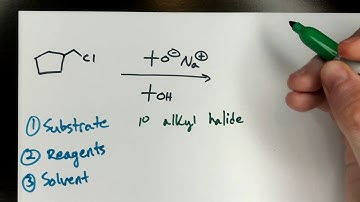 Cl
+O⊖ Na⊕
+OH
① Substrate 1° alkyl halide
② Reagents
③ Solvent